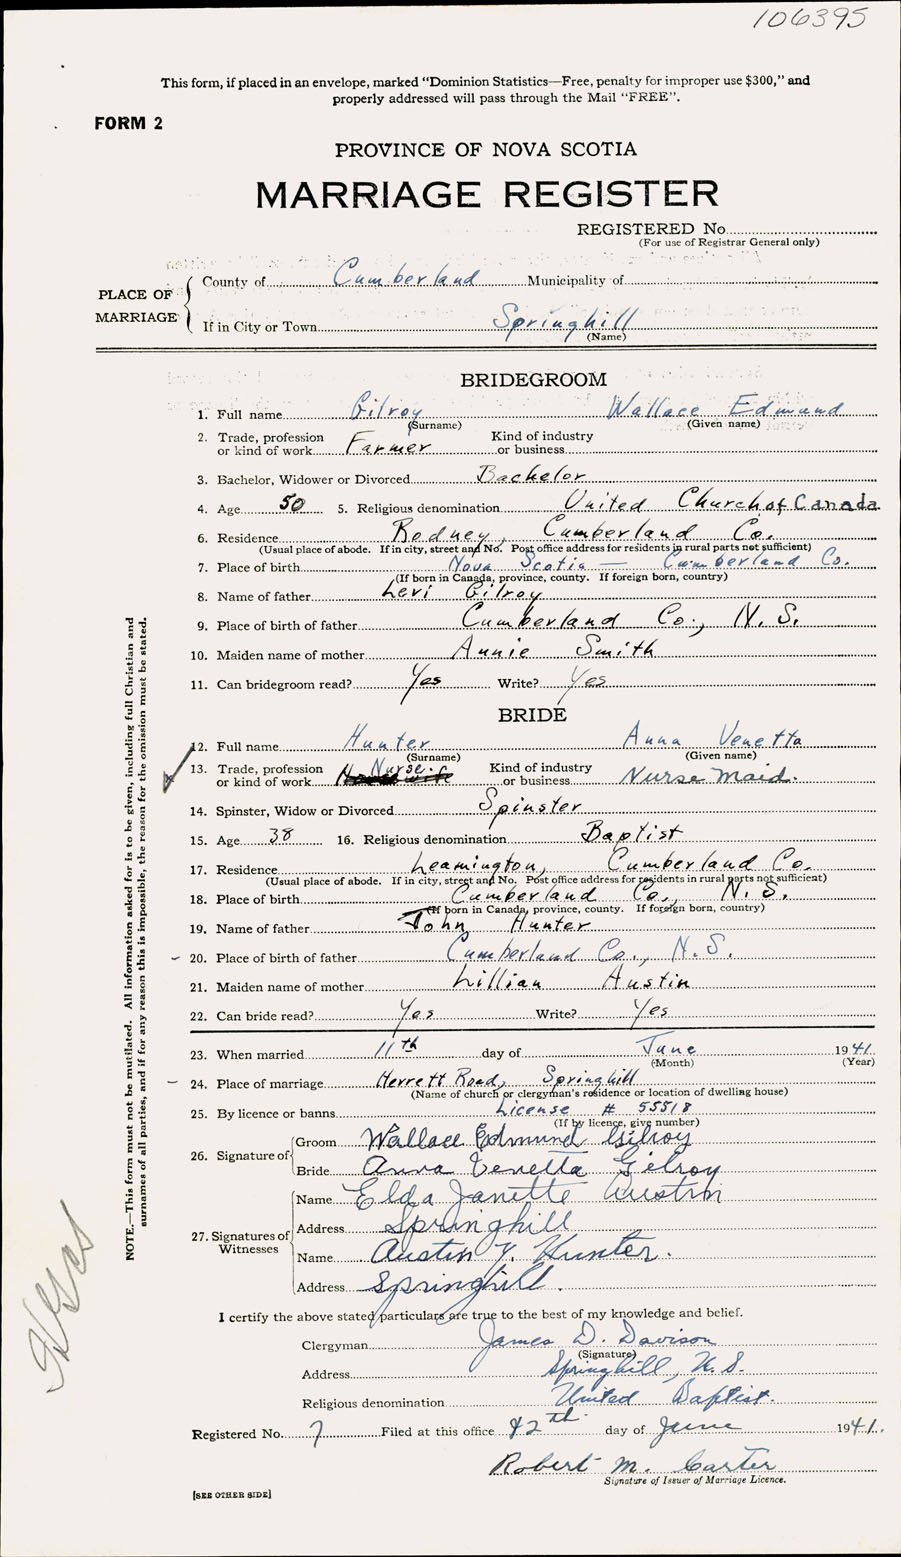 106395
This form, if placed in an envelope, marked “Dominion Statistics—Free, penalty for improper use $300,” and
properly addressed will pass through the Mail “FREE”.
FORM 2
PROVINCE OF NOVA SCOTIA
MARRIAGE REGISTER
REGISTERED No.
(For use of Registrar General only)
PLACE OF MARRIAGE
County of Cumberland Municipality of
If in City or Town Springhill
(Name)
BRIDEGROOM
1. Full name Gilroy Wallace Edmund
(Surname) (Given name)
2. Trade, profession or kind of work Farmer Kind of industry or business
3. Bachelor, Widower or Divorced Bachelor
4. Age 50 5. Religious denomination United Church of Canada
6. Residence Rodney, Cumberland Co.
(Usual place of abode. If in city, street and No. Post office address for residents in rural parts not sufficient)
7. Place of birth Nova Scotia — Cumberland Co.
(If born in Canada, province, county. If foreign born, country)
8. Name of father Levi Gilroy
9. Place of birth of father Cumberland Co., N.S.
10. Maiden name of mother Annie Smith
11. Can bridegroom read? Yes Write? Yes
BRIDE
12. Full name Hunter Anna Venetta
(Surname) (Given name)
13. Trade, profession or kind of work Nurse. Kind of industry or business Nurse Maid.
14. Spinster, Widow or Divorced Spinster
15. Age 38 16. Religious denomination Baptist
17. Residence Leamington, Cumberland Co.
(Usual place of abode. If in city, street and No. Post office address for residents in rural parts not sufficient)
18. Place of birth Cumberland Co., N.S.
(If born in Canada, province, county. If foreign born, country)
19. Name of father John Hunter
20. Place of birth of father Cumberland Co., N.S.
21. Maiden name of mother Lillian Austin
22. Can bride read? Yes Write? Yes
23. When married 11th day of June 1941
(Month) (Year)
24. Place of marriage Herrett Road, Springhill
(Name of church or clergyman's residence or location of dwelling house)
25. By licence or banns License # 55518
(If by licence, give number)
26. Signature of Groom Wallace Edmund Gilroy
Bride Anna Venetta Gilroy
27. Signatures of Witnesses
Name Elda Janette Austin
Address Springhill
Name Austin V. Hunter.
Address Springhill.
I certify the above stated particulars are true to the best of my knowledge and belief.
Clergyman James D. Davison
(Signature)
Address Springhill, N.S.
Religious denomination United Baptist.
Registered No. 7 Filed at this office 12th day of June 1941.
Robert M. Carter
Signature of Issuer of Marriage Licence.
[SEE OTHER SIDE]
NOTE.—This form must not be mutilated. All information asked for is to be given, including full Christian and
surnames of all parties, and if for any reason this is impossible, the reason for the omission must be stated.